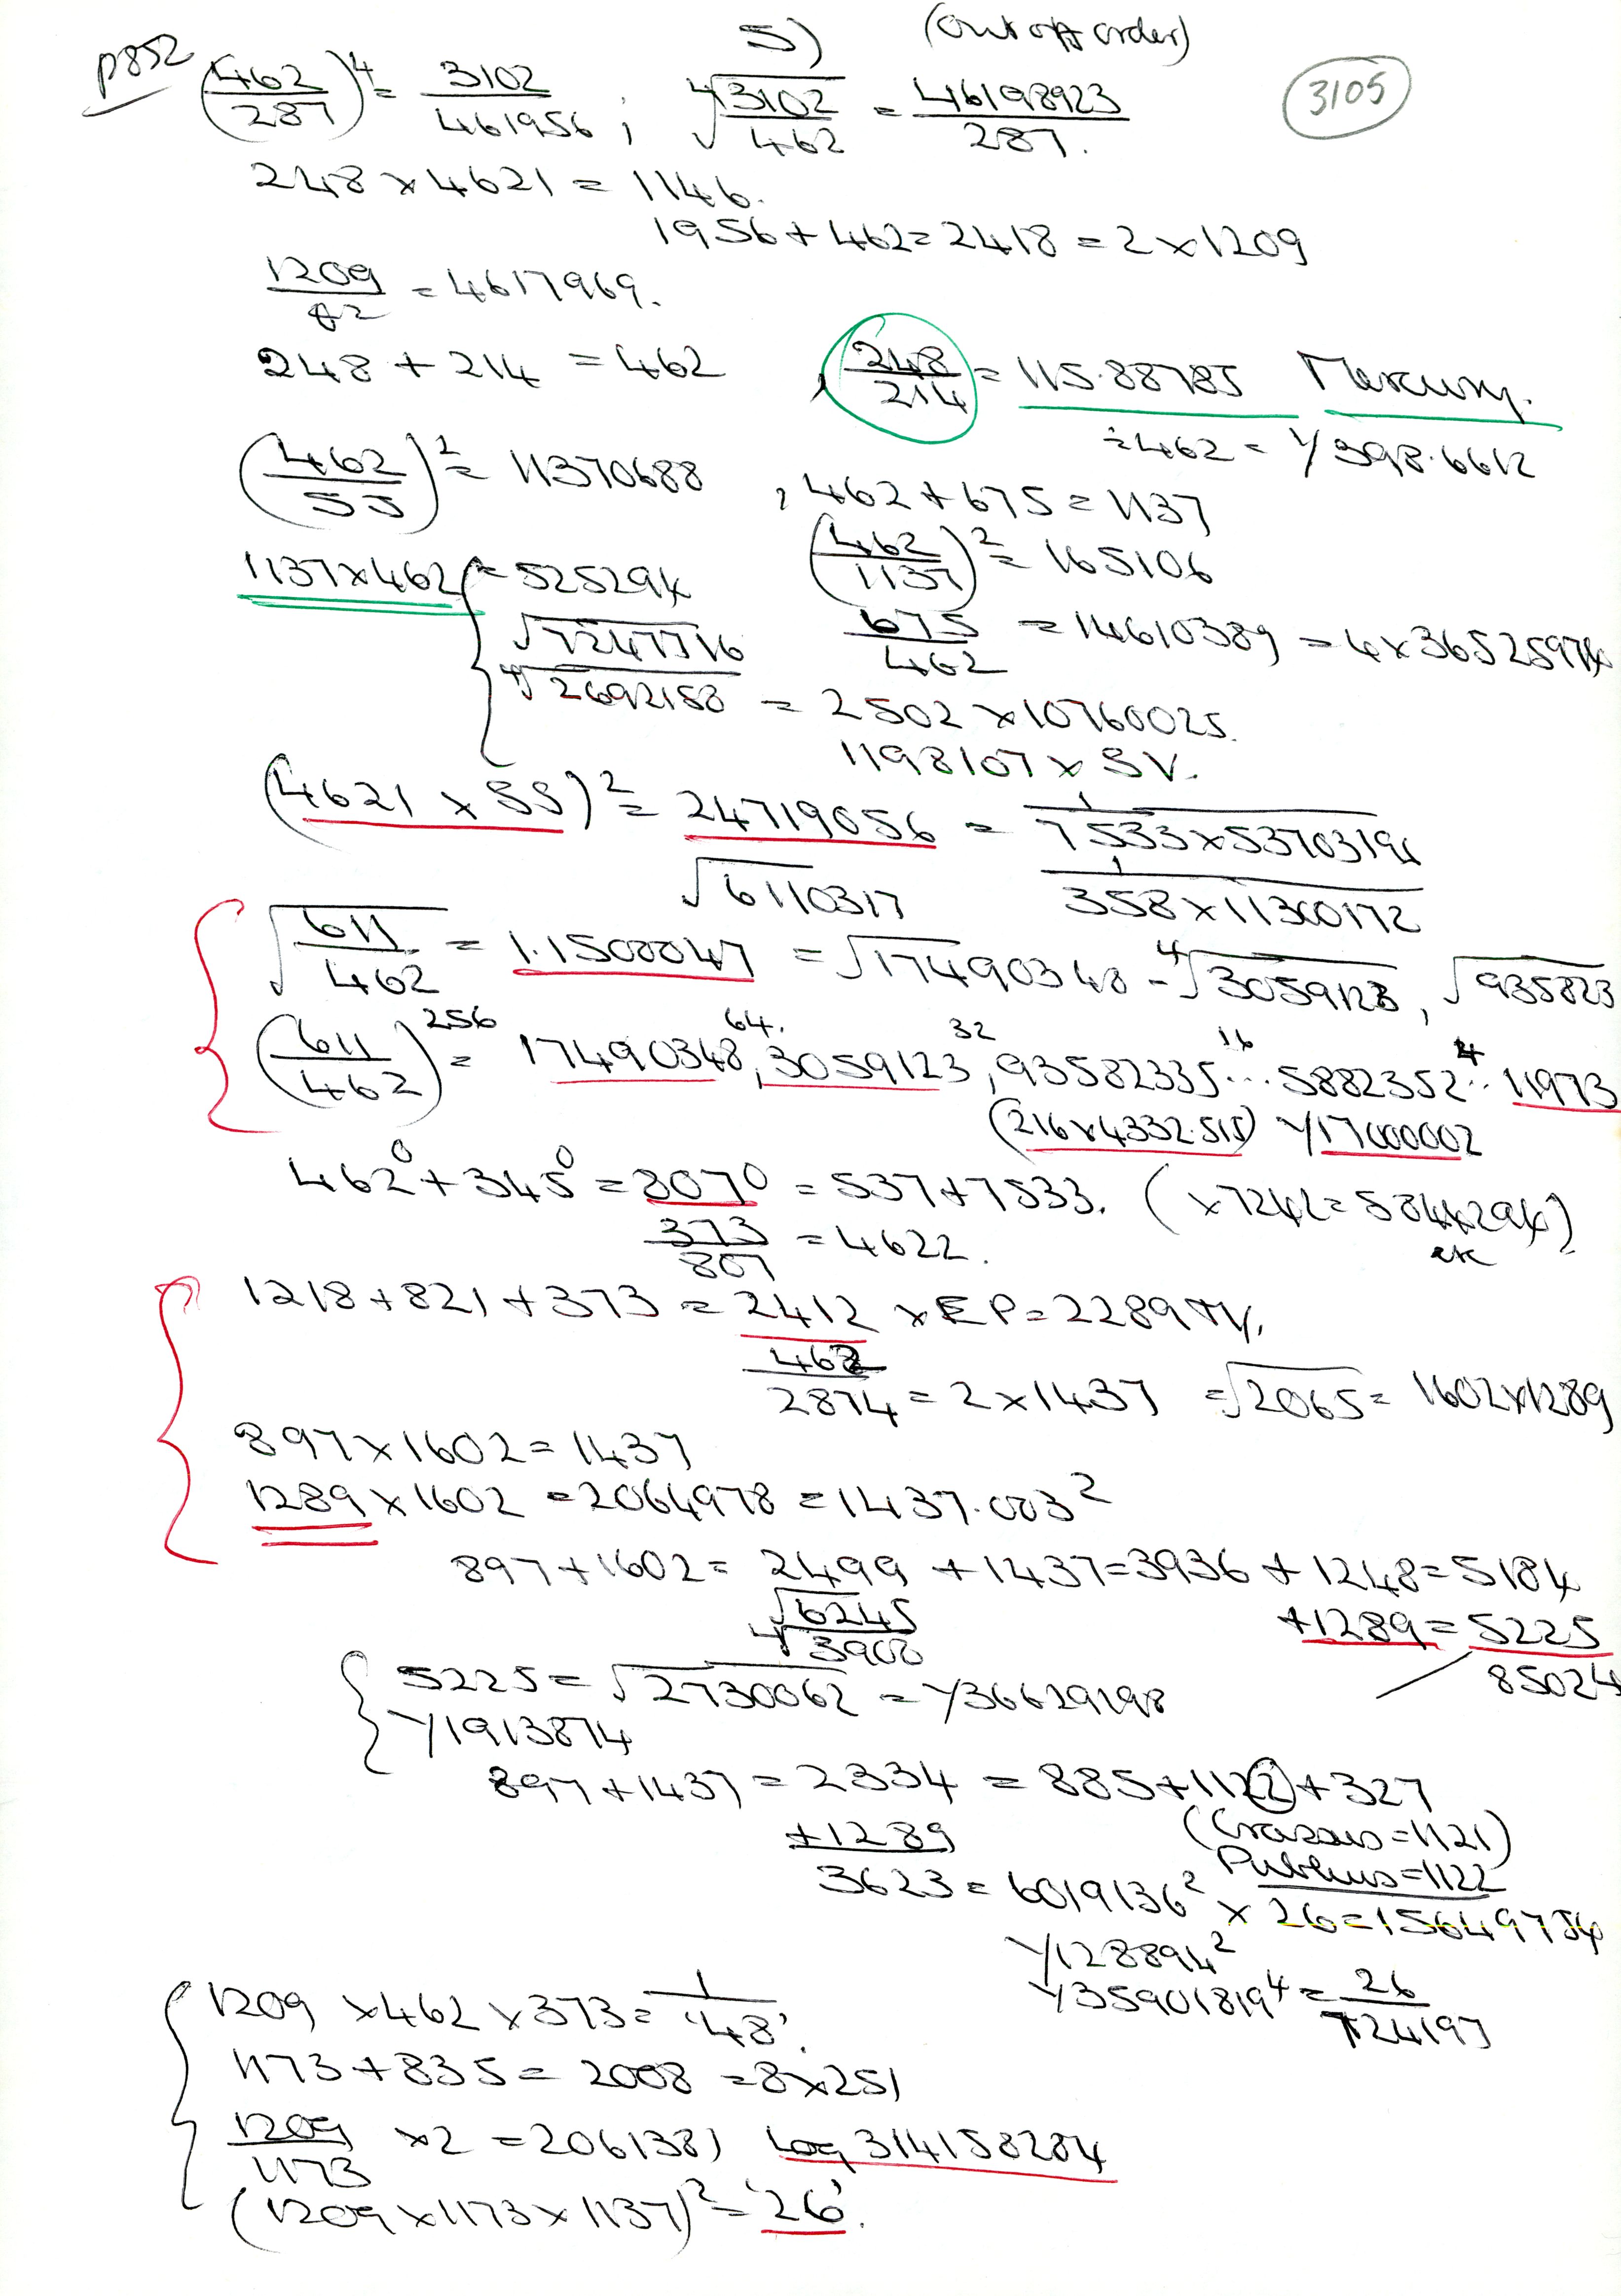 5) (out off order)
p852 (462/287)⁴ = 3102/461956 ; ⁴√3102/462 = 46198923/287. 3105
248 × 4621 = 1146.
1956 + 462 = 2418 = 2 × 1209
1209/= 4617969.
248 + 214 = 462 , 248/214 = 115.88785 Mercury.
÷462 = 1/398.6612
(462/55)² = 11370688 , 462 + 675 = 1137
(462/1137)² = 165106
1137 × 462 = 525294
√7247716 675/462 = 14610389 = 4 × 36525974
⁴√2692158 = 2502 × 10760025.
1198107 × SV.
(4621 × SS)² = 24719056 = 1/7533 × 5370319x
√6110317 1/358 × 11300172
√611/462 = 1.1500047 = √17490348 - ⁴√3059123, √935823
(611/462)²⁵⁶ = 17490348⁶⁴, 3059123³², 93582335¹⁶... 5882352⁴.. 11973
(216 × 4332.515) 1/17000002
462° + 345° = 807° = 537 + 7533. (×7242 = 5844294)
373/807 = 4622. etc
1218 + 821 + 373 = 2412 × EP = 2289 TY.
462
2874 = 2 × 1437 = √2065 = 1602 × 1289
897 × 1602 = 1437
1289 × 1602 = 2064978 = 1437.003²
897 + 1602 = 2499 + 1437 = 3936 + 1248 = 5184
√6245 + 1289 = 5225
⁴√3900 85024
5225 = √2730062 = 1/36629198
1/1913874
897 + 1437 = 2334 = 885 + 1122 + 327
+1289 (Crassus = 1121)
Publius = 1122
3623 = 6019136² × 26 = 15649754
1/128894²
1/35901819⁴ = 26/724197
1209 × 462 × 373 = 1/'48'.
1173 + 835 = 2008 = 8 × 251
1209/1173 × 2 = 2061381 Log 314158284
(1209 × 1173 × 1137)² = '26'.